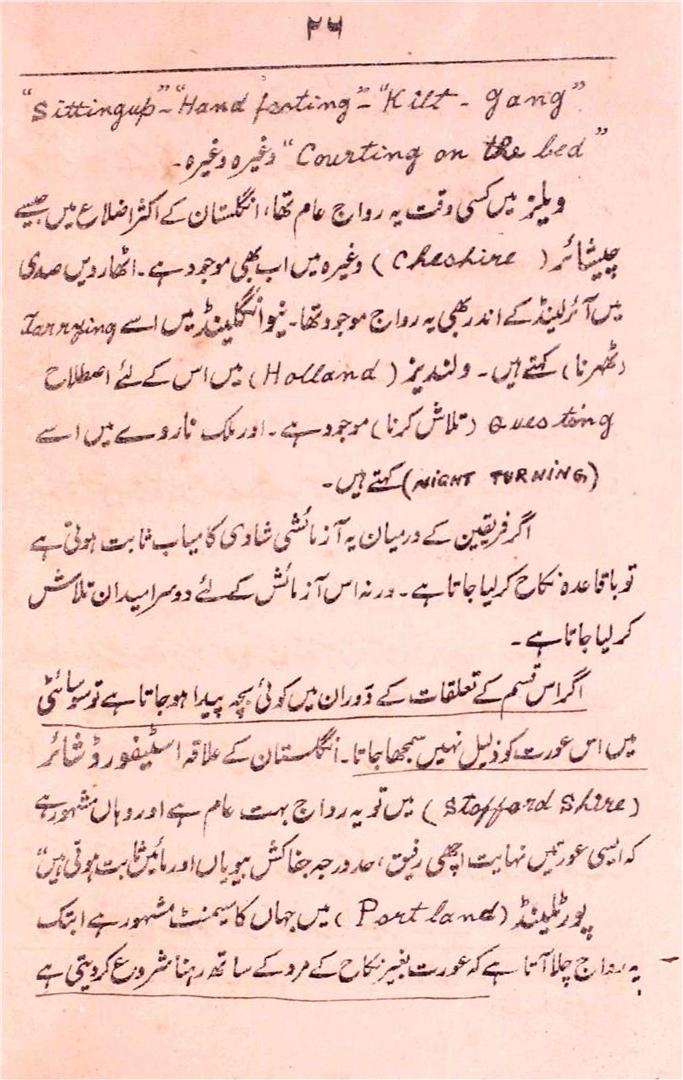 ۲۶
"Sittingup" - "Hand fasting" - "Kilt - gang"
"Courting on the bed" وغیرہ وغیرہ ۔
ویلز میں کسی وقت یہ رواج عام تھا، انگلستان کے اکثر اضلاع میں جیسے
چیشائر (Cheshire) وغیرہ میں اب بھی موجود ہے۔ اٹھارویں صدی
میں آئرلینڈ کے اندر بھی یہ رواج موجود تھا۔ نیو انگلینڈ میں اسے Tarrying
(ٹھہرنا) کہتے ہیں۔ ولندیز (Holland) میں اس کے لئے اصطلاح
Questing (تلاش کرنا) موجود ہے۔ اور ملک ناروے میں اسے
(NIGHT TURNING) کہتے ہیں۔
اگر فریقین کے درمیان یہ آزمائشی شادی کامیاب ثابت ہوتی ہے
تو باقاعدہ نکاح کرلیا جاتا ہے۔ ورنہ اس آزمائش کے لئے دوسرا میدان تلاش
کرلیا جاتا ہے۔
اگر اس قسم کے تعلقات کے دَوران میں کوئی بچہ پیدا ہو جاتا ہے تو سوسائٹی
میں اس عورت کو ذلیل نہیں سمجھا جاتا۔ انگلستان کے علاقہ اسٹیفورڈ شائر
(Stafford Shire) میں تو یہ رواج بہت عام ہے اور وہاں مشہور ہے
کہ ایسی عورتیں نہایت اچھی رفیق، حد درجہ جفاکش بیویاں اور مائیں ثابت ہوتی ہیں"
پورٹلینڈ (Portland) میں جہاں کا سیمنٹ مشہور ہے ابتک
یہ رواج چلا آتا ہے کہ عورت بغیر نکاح کے مرد کے ساتھ رہنا شروع کر دیتی ہے